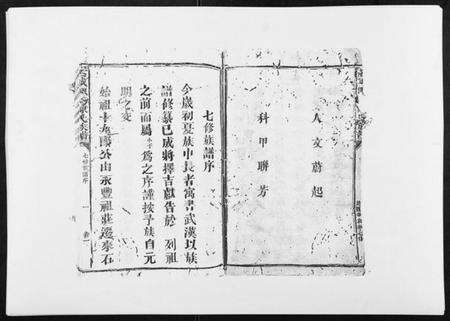 人文蔚起
科甲聯芳
七修族譜序
今歲初夏族中長者寓書武漢以族
譜修纂已成將擇吉獻告於 列祖
之前而屬小子為之序謹按予族自元
明之交
始祖十九郎公由永豐祖莊遷來石
七修族譜序
一